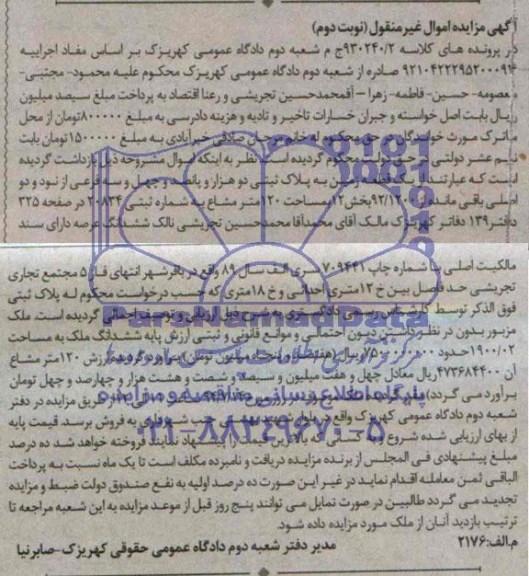 آگهی مزایده اموال غیرمنقول (نوبت دوم)
در پرونده های کلاسه ۹۳۰۲۴۰/۲ج م شعبه دوم دادگاه عمومی کهریزک بر اساس مفاد اجراییه
صادره از شعبه دوم دادگاه عمومی کهریزک محکوم علیه محمود- مجتبی-
معصومه- حسین- فاطمه- زهرا – آقمحمدحسین تجریشی و رعنا اقتصاد به پرداخت مبلغ سیصد میلیون
ریال بابت اصل خواسته و جبران خسارات تاخیر و تادیه و هزینه دادرسی به مبلغ ۸۰۰۰۰۰۰ تومان از محل
ماترک مورث خواندگان در حق محکوم له خانم مرجان صادقی خیرآبادی به مبلغ ۱۵۰۰۰۰۰ تومان بابت
نیم عشر دولتی در حق دولت محکوم گردیده است. نظر به اینکه اموال مشروحه ذیل بازداشت گردیده
است که عبارتند از یک قطعه زمین به پلاک ثبتی دو هزار و پانصد و چهل و سه فرعی از نود و دو
اصلی باقی مانده از ۹۲/۱۲۰۰ بخش ۱۲ مساحت ۱۲۰ متر مشاع به شماره ثبتی ۲۰۸۳۴ در صفحه ۳۲۵
دفتر ۱۳۹ دفاتر کهریزک مالک آقای محمدآقا محمدحسین تجریشی مالک ششدانگ عرصه دارای سند
مالکیت اصلی با شماره چاپ ۷۰۹۴۴۱ سری الف سال ۸۹ واقع در باقرشهر انتهای فاز ۵ مجتمع تجاری
تجریشی حد فاصل بین خ ۱۲ متری احداثی و خ ۱۸ متری که حسب درخواست محکوم له پلاک ثبتی
فوق الذکر توسط کارشناس رسمی دادگستری به شرح ذیل ارزیابی و توصیف اجمالی گردیده است. ملک
مزبور بدون در نظر داشتن دیون احتمالی و موانع قانونی و ثبتی ارزش پایه ششدانگ ملک به مساحت
۱۹۰۰/۰۲ حدود ریال (هفتصد و پنجاه میلیون تومان) برآورد می گردد ارزش ۱۲۰ متر مشاع
آن ۴۷۳۶۸۴۴۰۰ ریال معادل چهل و هفت میلیون و سیصد و شصت و هشت هزار و چهارصد و چهل تومان
برآورد می گردد) مقرر گردیده از طریق مزایده در دفتر
شعبه دوم دادگاه عمومی کهریزک واقع در به فروش برسد. قیمت پایه
از بهای ارزیابی شده شروع و به کسانی که بالاترین قیمت را پیشنهاد نمایند فروخته خواهد شد ده درصد
مبلغ پیشنهادی فی المجلس از برنده مزایده دریافت و نامبرده مکلف است تا یک ماه نسبت به پرداخت
الباقی ثمن معامله اقدام نماید در غیر این صورت ده درصد اولیه به نفع صندوق دولت ضبط و مزایده
تجدید می گردد طالبین در صورت تمایل می توانند پنج روز قبل از موعد مزایده به این شعبه مراجعه تا
ترتیب بازدید آنان از ملک مورد مزایده داده شود.
م.الف: ۲۱۷۶ مدیر دفتر شعبه دوم دادگاه عمومی حقوقی کهریزک- صابرنیا
ParsNamadData
پایگاه اطلاع رسانی مناقصه و مزایده
۰۲۱-۸۸۳۴۹۶۷۰-۵